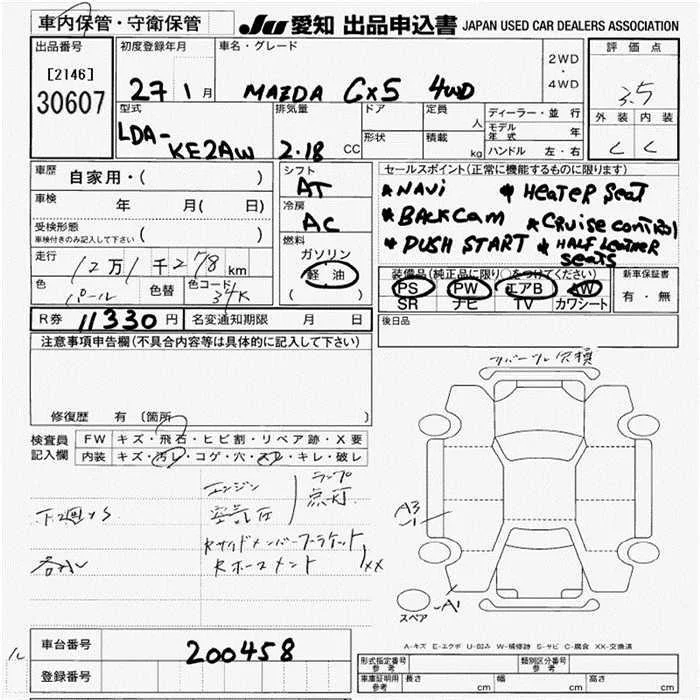 車内保管・守衛保管
JU 愛知 出品申込書 JAPAN USED CAR DEALERS ASSOCIATION
出品番号
[2146]
30607
初度登録年月
27 1 月
車名・グレード
MAZDA CX5 4WD
2WD
・
4WD
評価点
3.5
外装 内装
C C
型式
LDA-
KE2AW
排気量
2.18 CC
ドア
形状
定員 人
積載 kg
ディーラー・並行
モデル年式 年
ハンドル 左・右
車歴
自家用・( )
車検 年 月( 日)
受検形態
車検付きのみ記入して下さい ( )
走行 12万1千278km
色 パール 色替 色コード 34K
R券 11330円 名変通知期限 月 日
シフト
AT
冷房
AC
燃料
ガソリン
軽油
( )
セールスポイント(正常に機能するものに限ります)
*NAVi *HEATER SEAT
*BACKCAM *CRUISE CONTROL
*PUSH START *HALF LEATHER
SEATS
装備品(純正品に限り○をつけてください) 新車保証書
PS PW エアB AW
SR ナビ TV カワシート
有・無
後日品
注意事項申告欄(不具合内容等は具体的に記入して下さい)
修復歴 有 (箇所 )
検査員
記入欄
FW キズ・飛石・ヒビ割・リペア跡・X要
内装 キズ・汚レ・コゲ・穴・スレ・キレ・破レ
エンジン
空気圧
ランプ
点灯
下廻りS
Rサイドメンバーブラケット
Rホースメント
XX
A3
A1
スペア
A-キズ E-エクボ U-凹み W-補修跡 S-サビ C-腐食 XX-交換済
車台番号 200458
登録番号
形式指定番号
参考
類別区分番号
参考
車庫証明用
参考
長さ cm 幅 cm 高さ cm